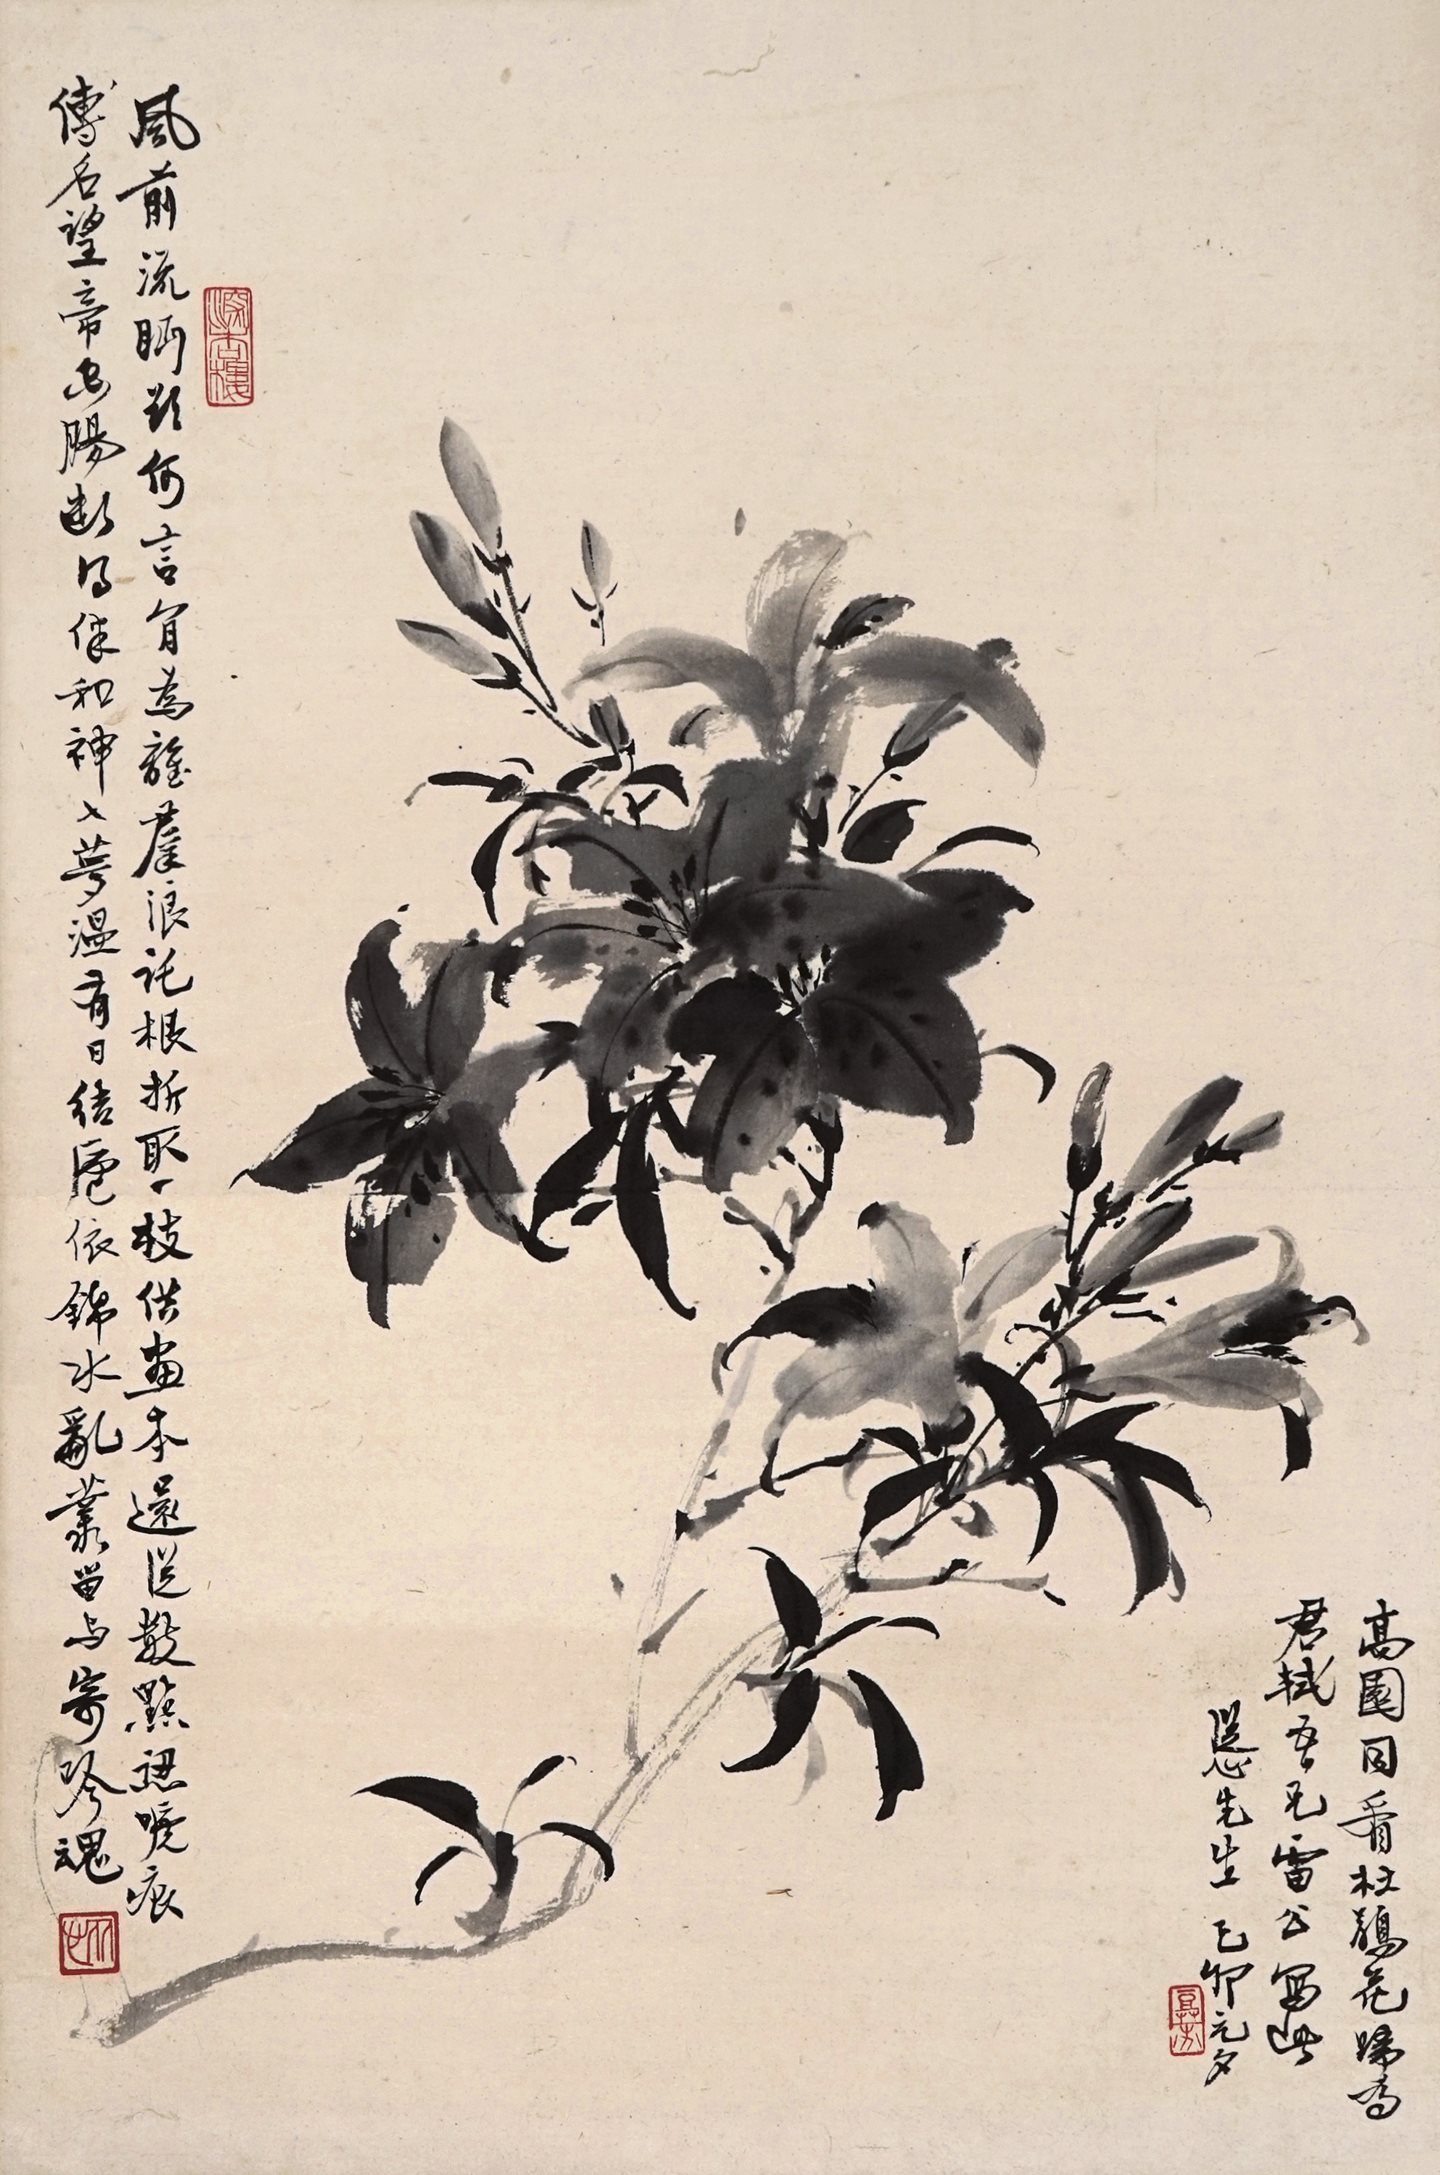 風前流眄欲何言肎為離羣浪託根折取一枝供畫本還從數點認嗁痕
傳名望帝空腸斷得伴和神入夢溫有日結廬依錦水亂叢留与寄吟魂
高園同看杜鵑花歸為
君軾吾兄雷公寫此
從心先生 己卯元夕